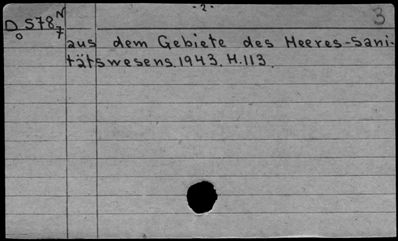 -2-
3
D 578 N
o 7
aus dem Gebiete des Heeres-Sani-
tätswesens. 1943. H.113.